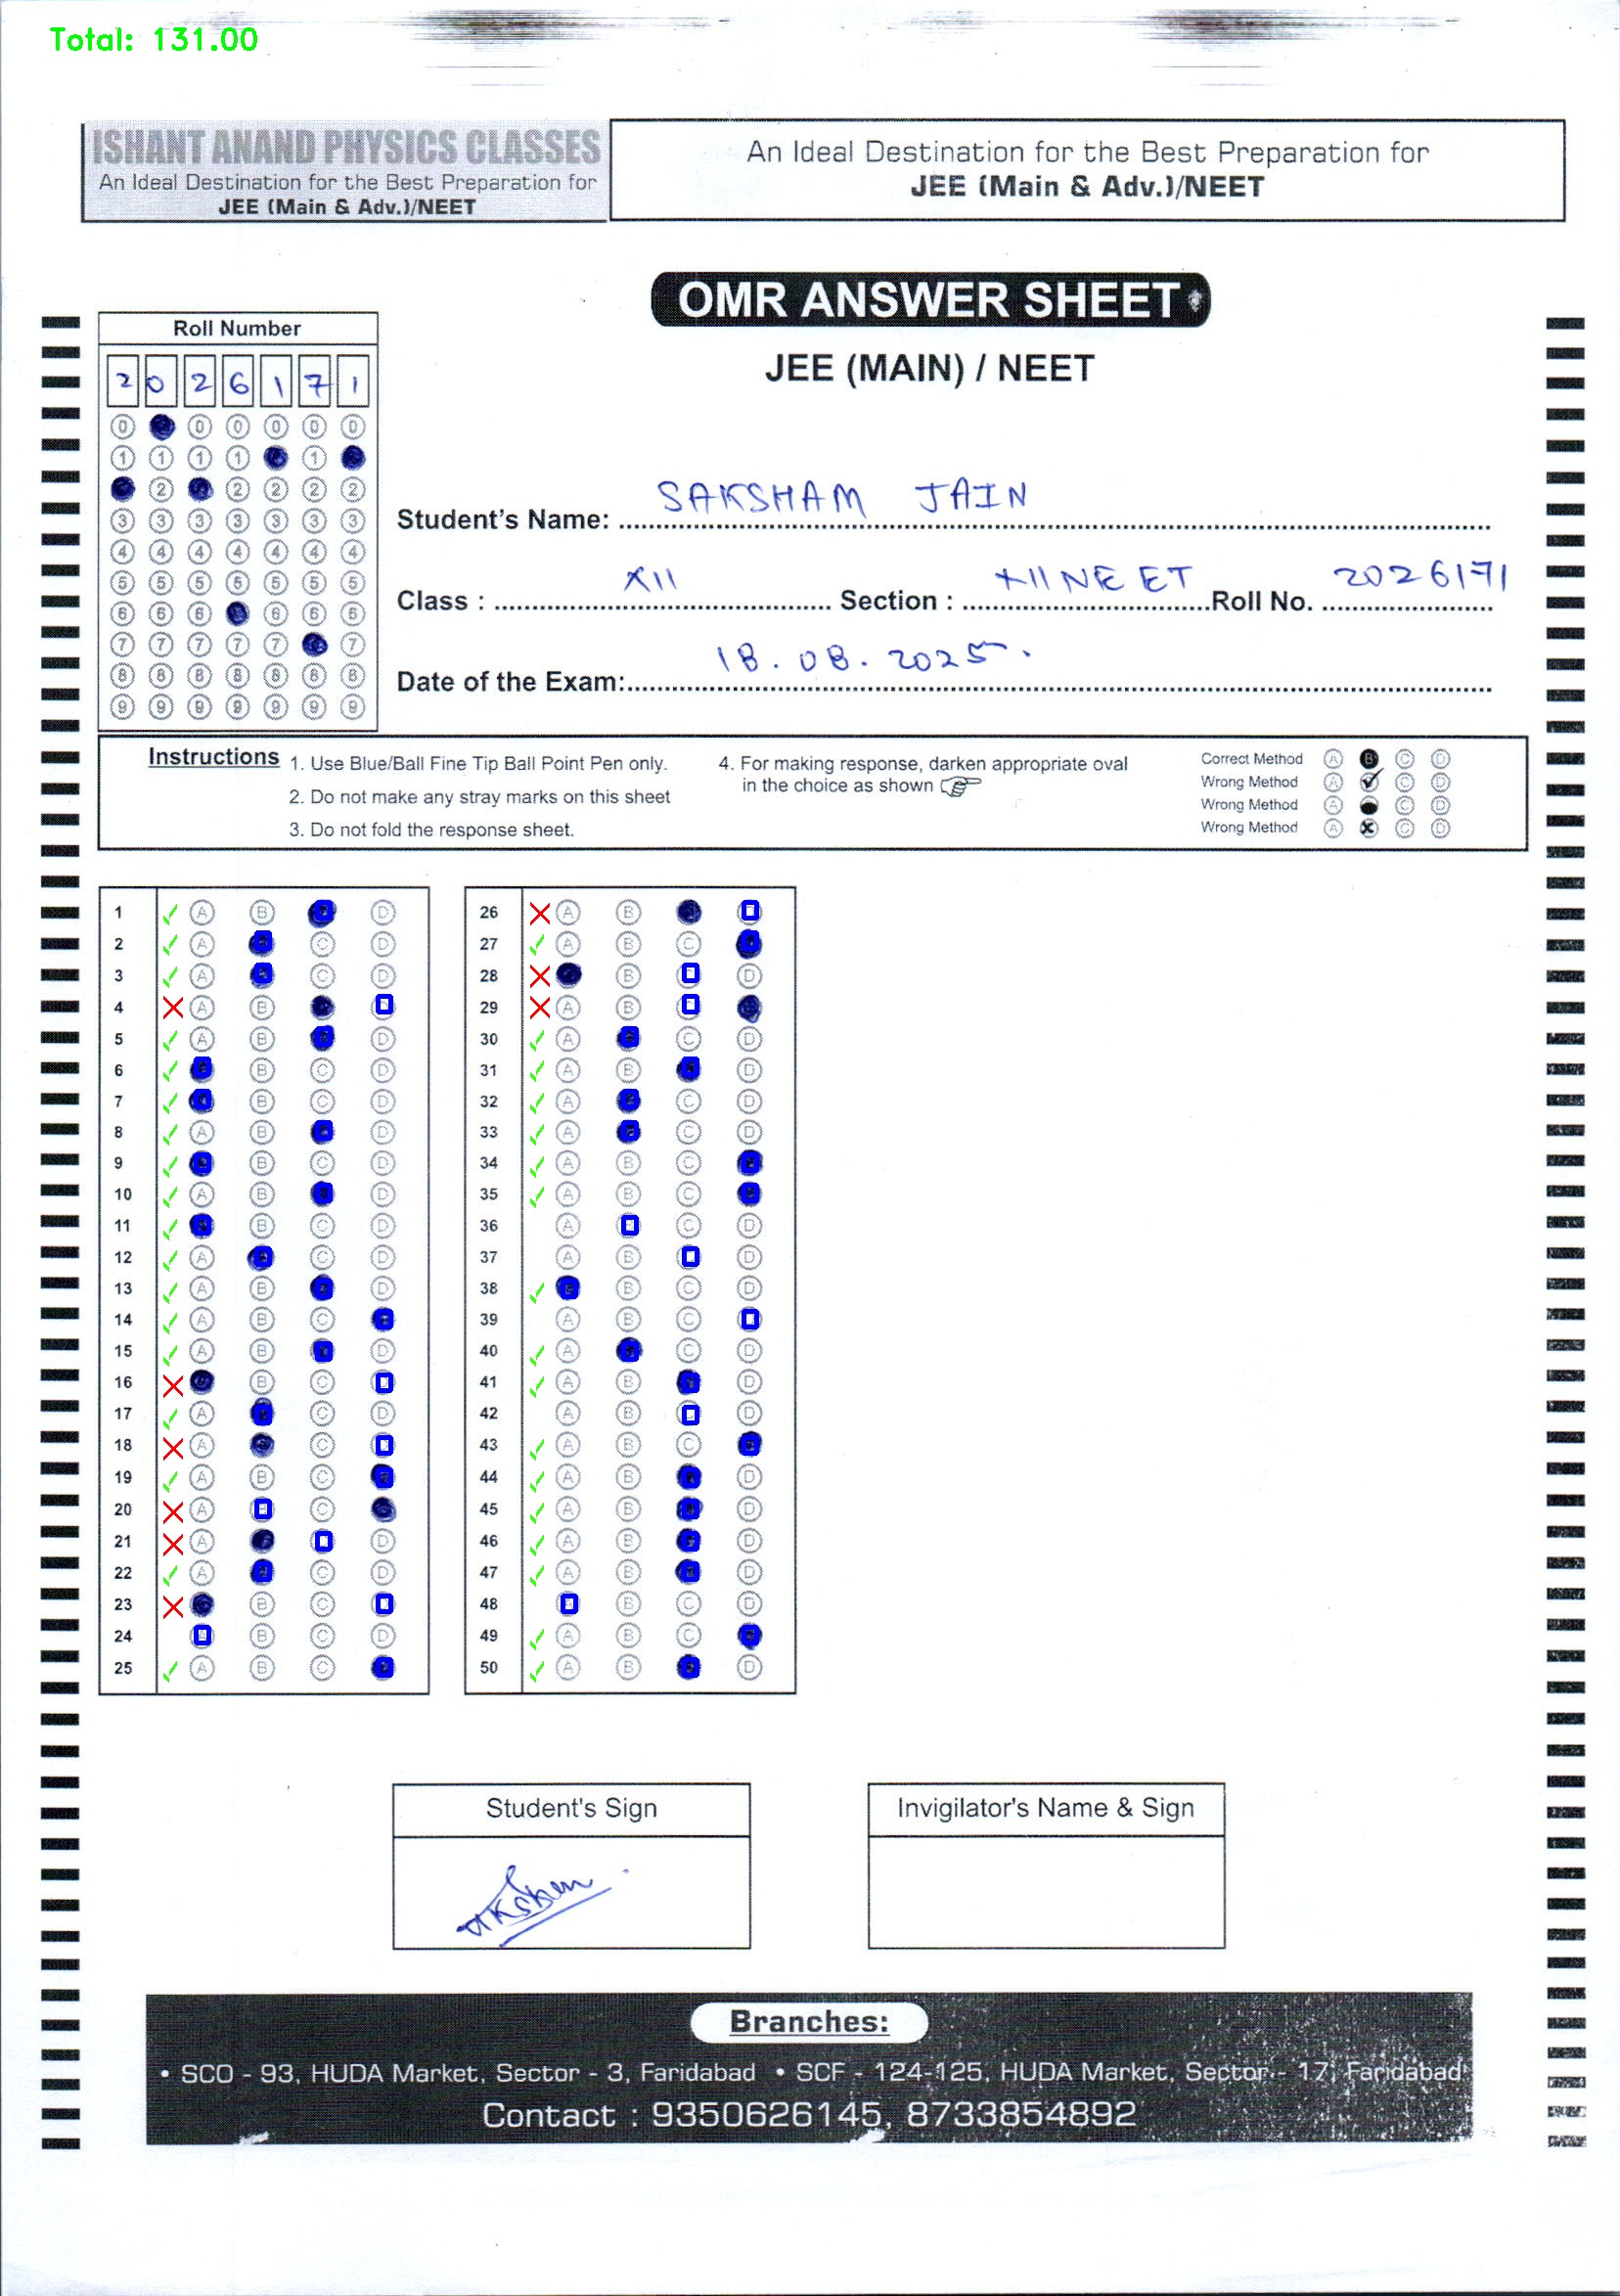 Total: 131.00
ISHANT ANAND PHYSICS CLASSES
An Ideal Destination for the Best Preparation for
JEE (Main & Adv.)/NEET
An Ideal Destination for the Best Preparation for
JEE (Main & Adv.)/NEET
OMR ANSWER SHEET
JEE (MAIN) / NEET
Roll Number
2 0 2 6 1 7 1
0 0 0 0 0 0
1 1 1 1 1
2 2 2 2 2
3 3 3 3 3 3 3
4 4 4 4 4 4 4
5 5 5 5 5 5 5
6 6 6 6 6 6
7 7 7 7 7 7
8 8 8 8 8 8 8
9 9 9 9 9 9 9
Student's Name: SAKSHAM JAIN
Class : XII Section : XII NEET Roll No. 2026171
Date of the Exam: 18.08.2025.
Instructions
1. Use Blue/Ball Fine Tip Ball Point Pen only.
2. Do not make any stray marks on this sheet
3. Do not fold the response sheet.
4. For making response, darken appropriate oval
in the choice as shown
Correct Method A B C D
Wrong Method A C D
Wrong Method A C D
Wrong Method A C D
1 A B D
2 A C D
3 A C D
4 A B
5 A B D
6 B C D
7 B C D
8 A B D
9 B C D
10 A B D
11 B C D
12 A C D
13 A B D
14 A B C
15 A B D
16 B C
17 A C D
18 A C
19 A B C
20 A C
21 A D
22 A C D
23 B C
24 B C D
25 A B C
26 A B
27 A B C
28 B D
29 A B
30 A C D
31 A B D
32 A C D
33 A C D
34 A B C
35 A B C
36 A C D
37 A B D
38 B C D
39 A B C
40 A C D
41 A B D
42 A B D
43 A B C
44 A B D
45 A B D
46 A B D
47 A B D
48 B C D
49 A B C
50 A B D
Student's Sign
Invigilator's Name & Sign
Branches:
• SCO - 93, HUDA Market, Sector - 3, Faridabad • SCF - 124-125, HUDA Market, Sector - 17, Faridabad
Contact : 9350626145, 8733854892